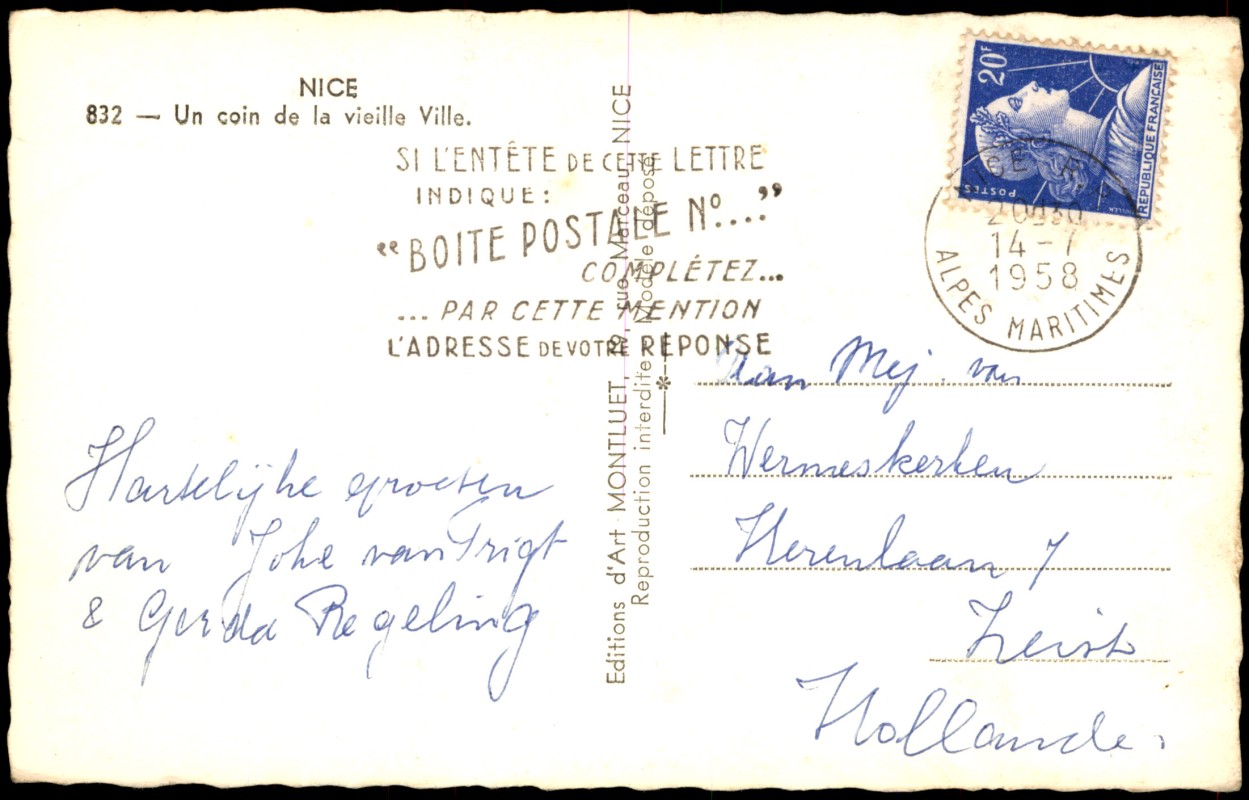 NICE
832 — Un coin de la vieille Ville.
SI L'ENTÊTE DE CETTE LETTRE
INDIQUE :
“BOITE POSTALE Nº...”
COMPLÉTEZ...
... PAR CETTE MENTION
L'ADRESSE DE VOTRE RÉPONSE
Hartelijke groeten
van Joke van Trigt
& Gerda Regeling
Editions d'Art MONTLUET, rue Marceau, NICE
Reproduction interdite Modèle déposé
20F
POSTES
REPUBLIQUE FRANÇAISE
NICE R.P.
14-7
1958
ALPES MARITIMES
Aan Mej. van
Wermeskerken
Herenlaan 7
Zeist
Hollande.